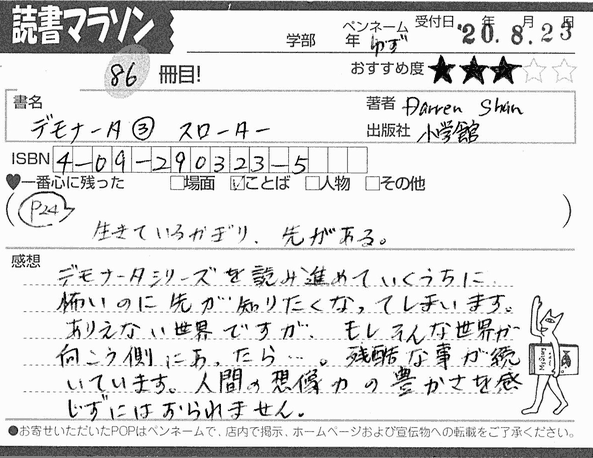 読書マラソン
学部 年 ペンネーム ゆず 受付日 '20.年8.月23日
86 冊目! おすすめ度 ★★★☆☆
書名 著者 Darren Shan
デモナータ③ スローター 出版社 小学館
ISBN 4-09-290323-5
♥一番心に残った □場面 ☑ことば □人物 □その他
(P24)
生きているかぎり、先がある。
感想
デモナータシリーズを読み進めていくうちに
怖いのに先が知りたくなってしまいます。
ありえない世界ですが、もしそんな世界が
向こう側にあったら…。残酷な事が続
いています。人間の想像力の豊かさを感
じずにはおられません。
●お寄せいただいたPOPはペンネームで、店内で掲示、ホームページおよび宣伝物への転載をご了承ください。